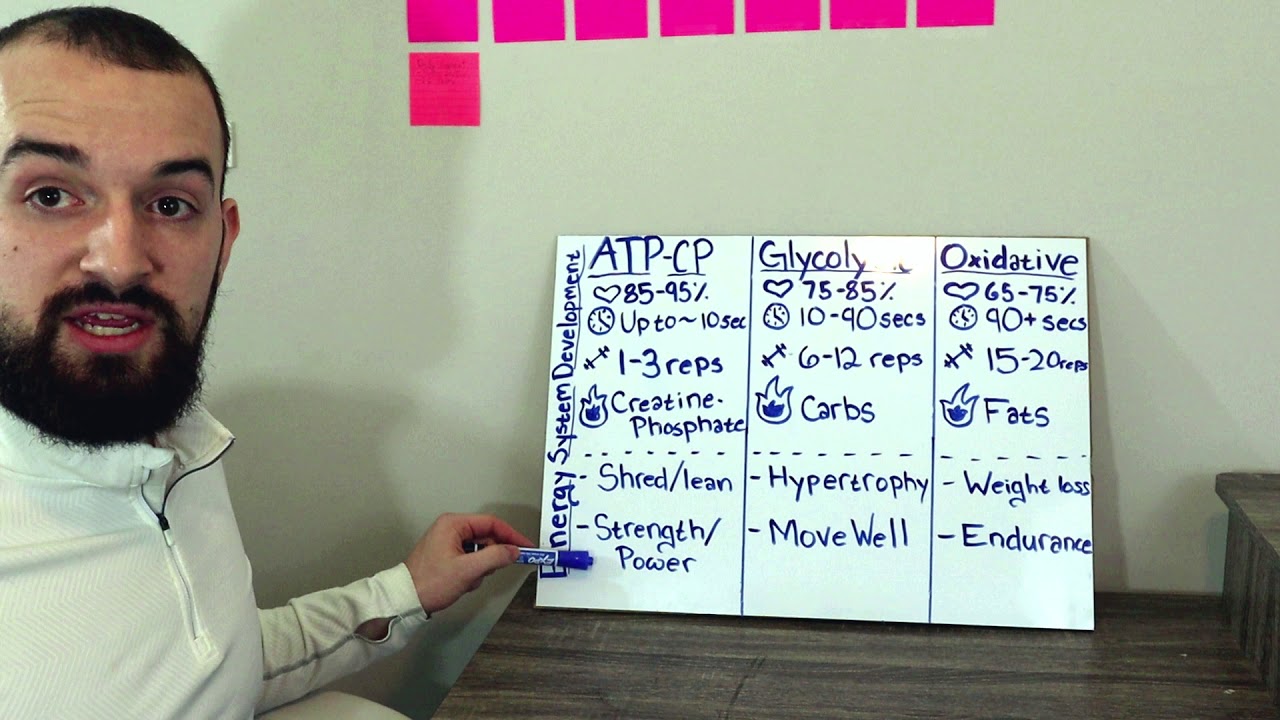 Energy System Development
ATP-CP
85-95%
Up to ~ 10sec
1-3 reps
Creatine-
Phosphate
- Shred/lean
- Strength/
Power
75-85%
10-90secs
6-12 reps
Carbs
- Hypertrophy
- Move Well
Oxidative
65-75%
90+ secs
15-20reps
Fats
- Weight loss
- Endurance
EXPO